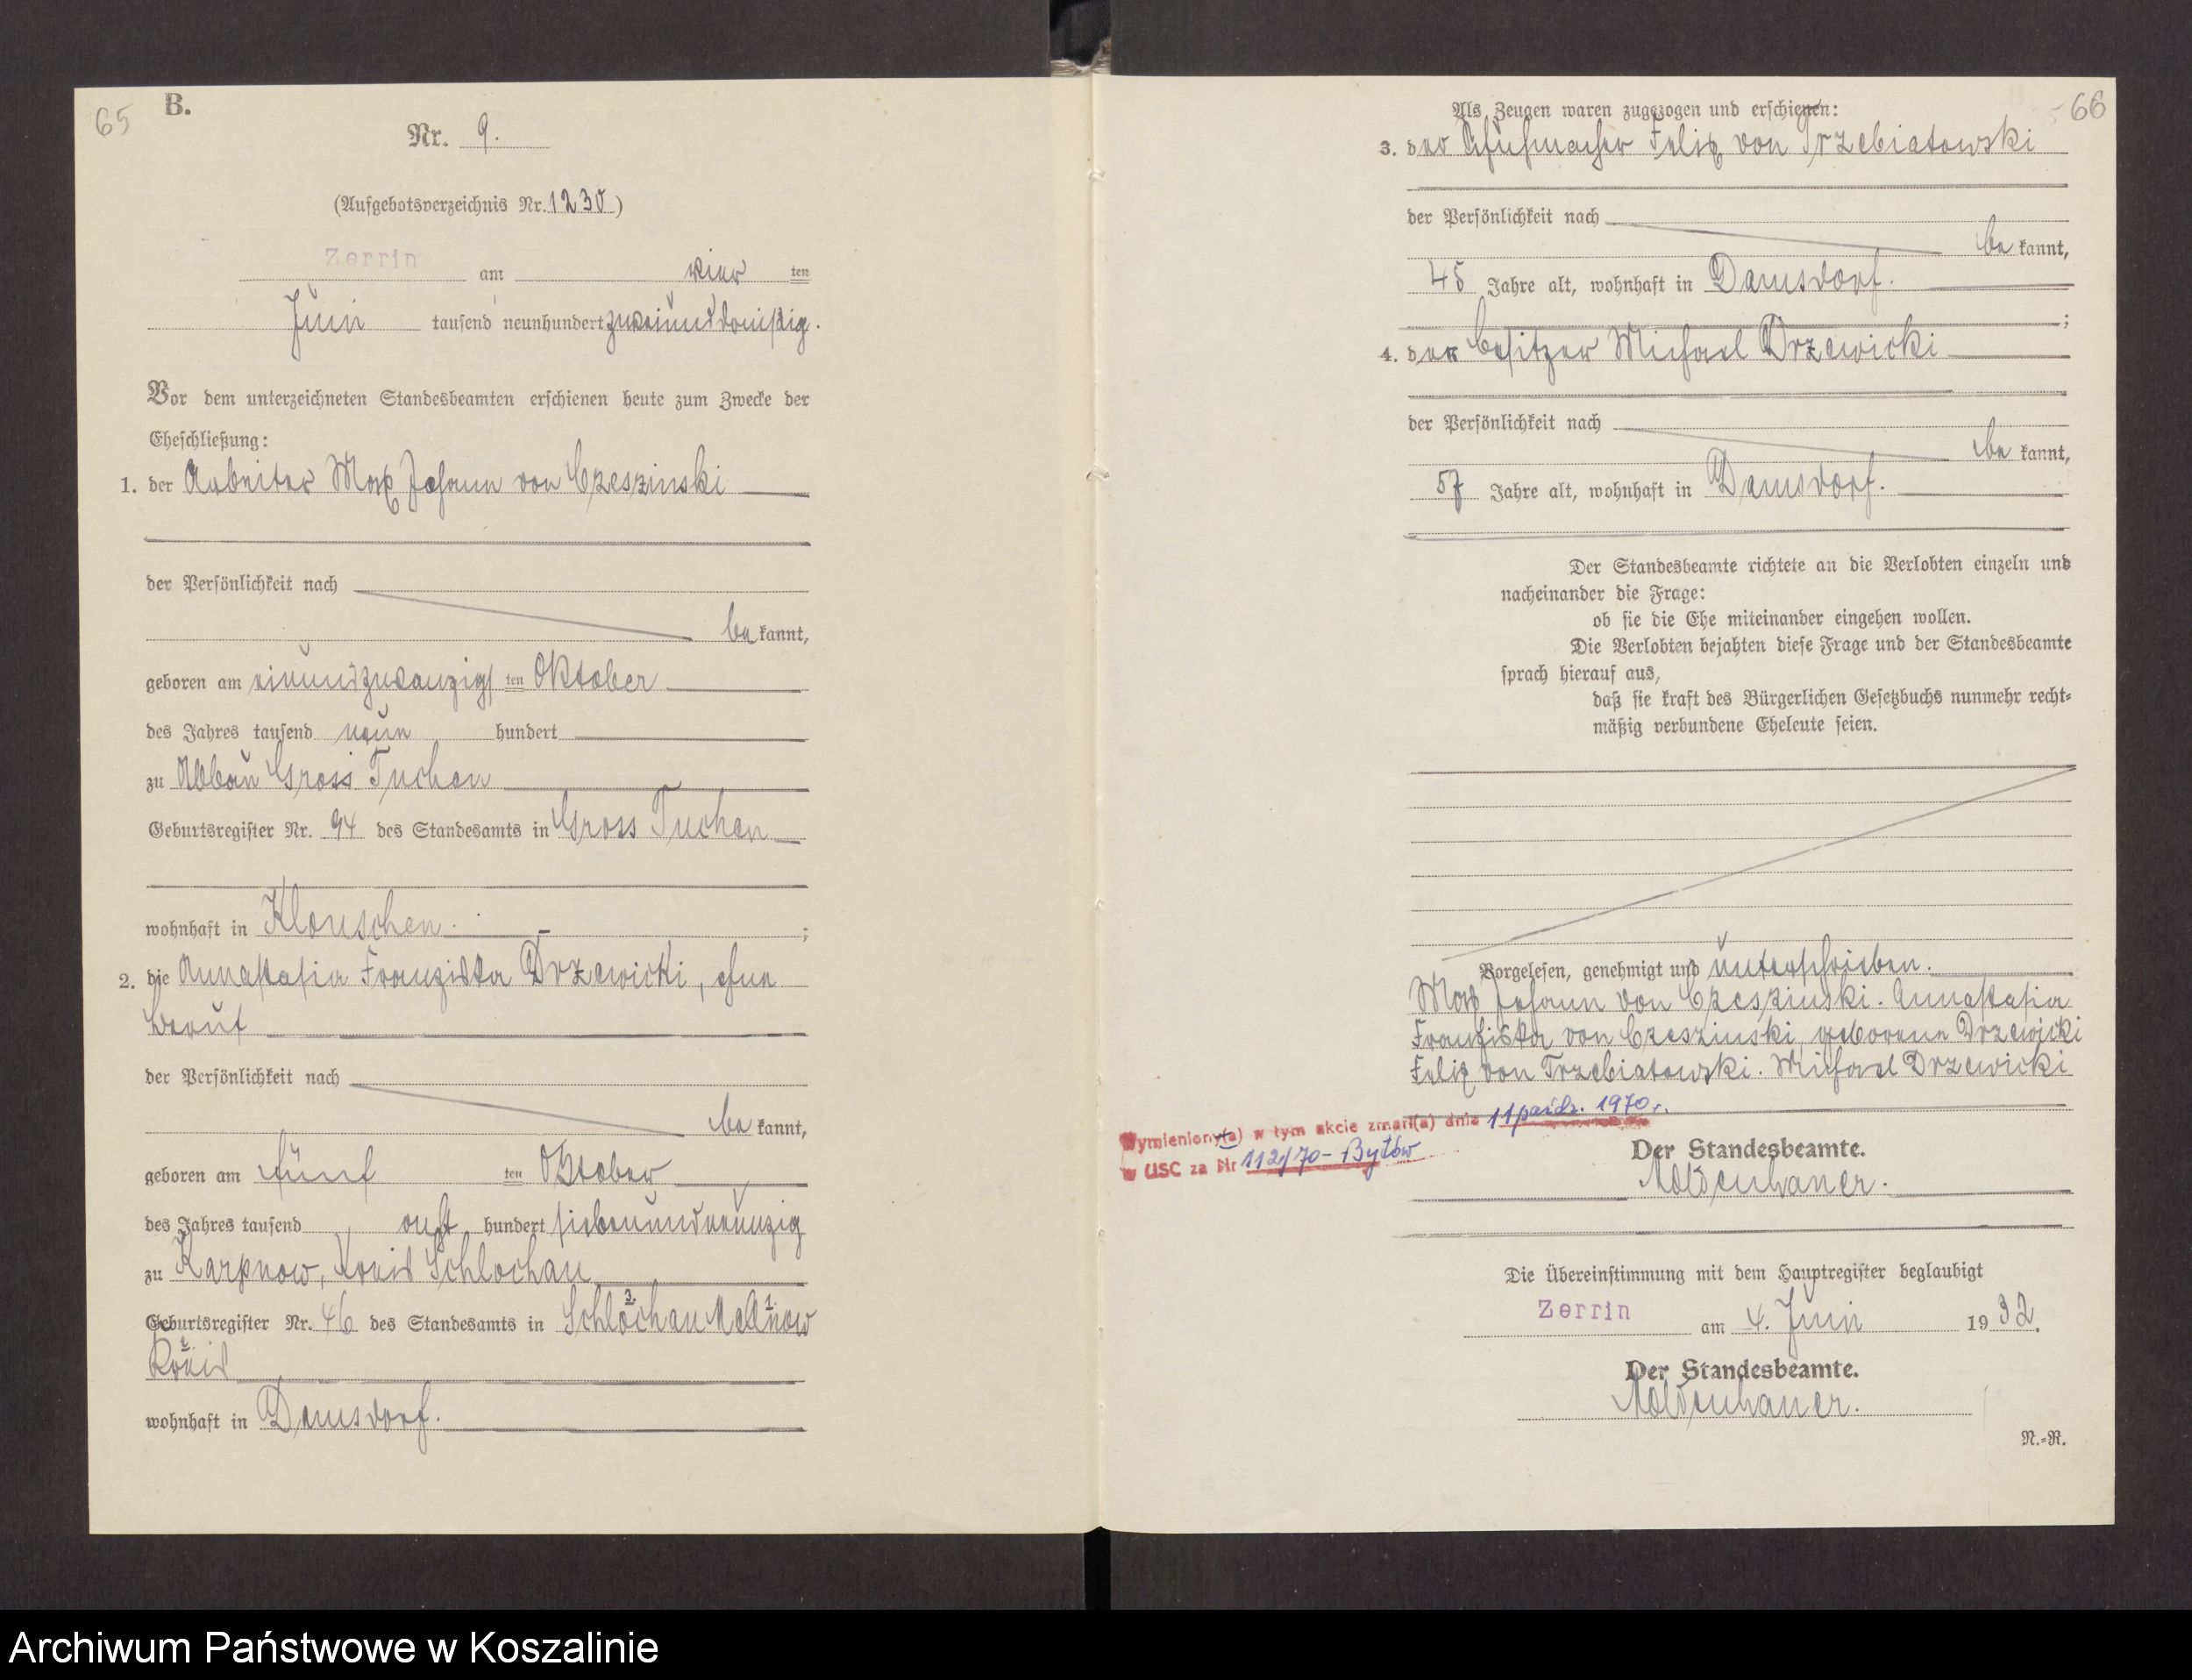 65
B.
Nr. 9.
(Aufgebotsverzeichnis Nr. 1230)
Zerrin am vier ten
Juni tausend neunhundert zweiunddreißig.
Vor dem unterzeichneten Standesbeamten erschienen heute zum Zwecke der
Eheschließung:
1. der Arbeiter Max Johann von Czeszinski
der Persönlichkeit nach
be kannt,
geboren am einundzwanzigs ten Oktober
des Jahres tausend neun hundert
zu Abbau Gross Tuchen
Geburtsregister Nr. 94 des Standesamts in Gross Tuchen
wohnhaft in Klonschen.
;
2. die Annastasia Franziska Drzewicki, ohne
Beruf
der Persönlichkeit nach
be kannt,
geboren am fünf ten Oktober
des Jahres tausend acht hundert siebenundneunzig
zu Karpnow, Kreis Schlochau
Geburtsregister Nr. 46 des Standesamts in Schlochau
Kreis
wohnhaft in Damsdorf.
66
Als Zeugen waren zugezogen und erschienen:
3. der Schuhmacher Felix von Trzebiatowski
der Persönlichkeit nach
be kannt,
45 Jahre alt, wohnhaft in Damsdorf.
;
4. der Besitzer Michael Drzewicki
der Persönlichkeit nach
be kannt,
57 Jahre alt, wohnhaft in Damsdorf.
Der Standesbeamte richtete an die Verlobten einzeln und
nacheinander die Frage:
ob sie die Ehe miteinander eingehen wollen.
Die Verlobten bejahten diese Frage und der Standesbeamte
sprach hierauf aus,
daß sie kraft des Bürgerlichen Gesetzbuchs nunmehr recht-
mäßig verbundene Eheleute seien.
Vorgelesen, genehmigt und unterschrieben.
Max Johann von Czeszinski. Annastasia
Franziska von Czeszinski geborene Drzewicki
Felix von Trzebiatowski. Michael Drzewicki
Wymieniony(a) w tym akcie zmarł(a) dnia 11 paźdz. 1970 r.
w USC za Nr 112/70 - Bytów
Der Standesbeamte.
Moldenhauer.
Die Übereinstimmung mit dem Hauptregister beglaubigt
Zerrin am 4. Juni 1932.
Der Standesbeamte.
Moldenhauer.
N.-R.
Archiwum Państwowe w Koszalinie